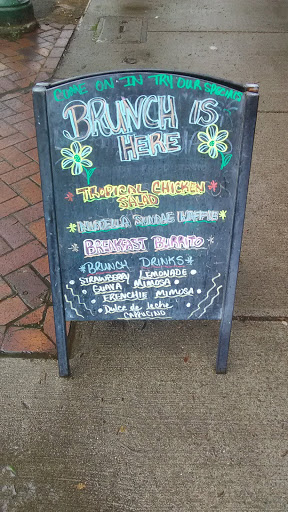 COME ON IN TRY OUR
BRUNCH IS
HERE
TROPICAL CHICKEN
SALAD
BREAKFAST BURRITO
*BRUNCH DRINKS*
STRAWBERRY LEMONADE
GUAVA MIMOSA
FRENCHIE MIMOSA
Dulce de leche
CAPPUCINO